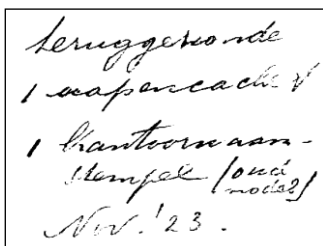 teruggezonde
1 wapencachet
1 kantoornaam-
stempel (oud
model)
Nov. '23.